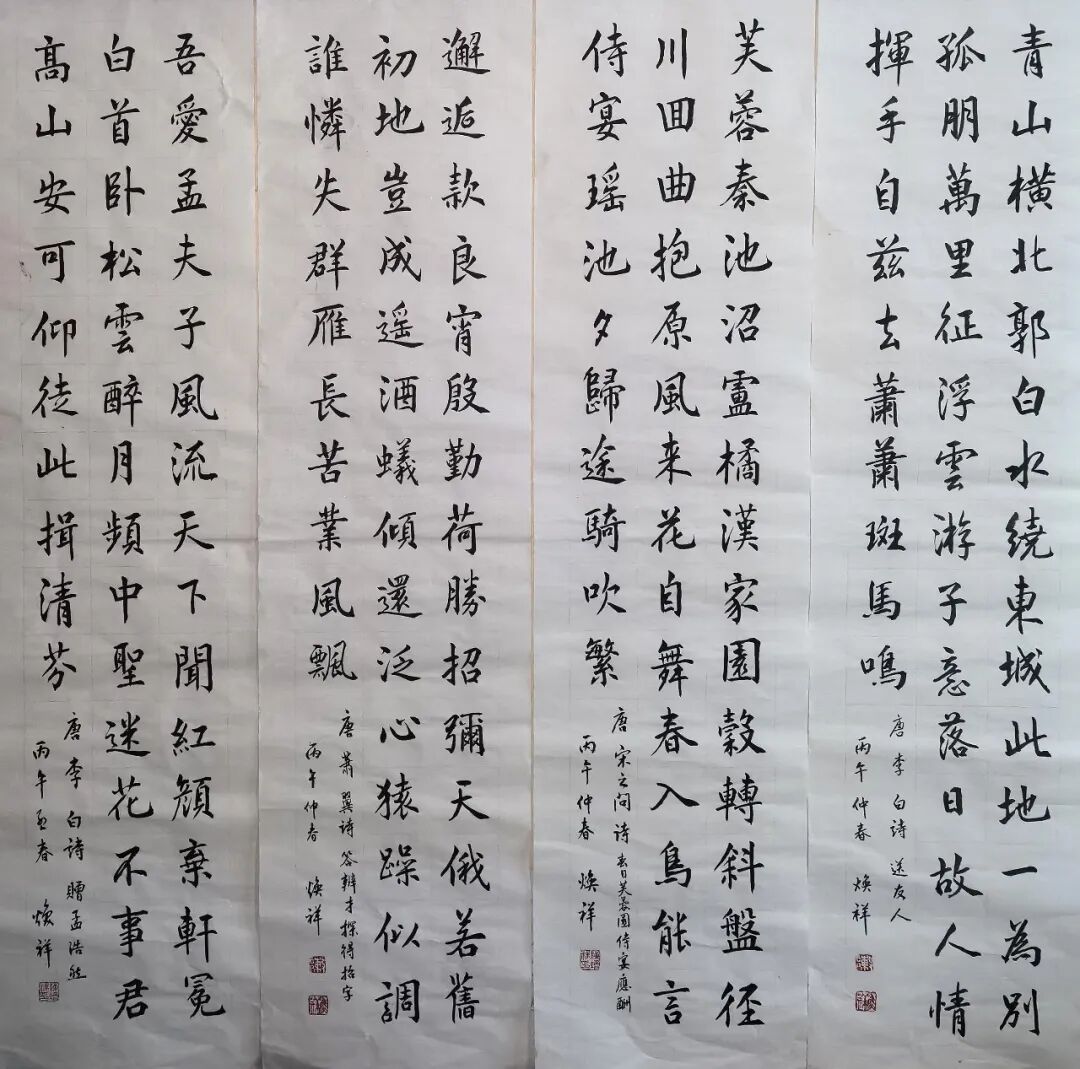 青山橫北郭白水繞東城此地一為別
孤朋萬里征浮雲游子意落日故人情
揮手自茲去蕭蕭斑馬鳴
唐李白詩 送友人
丙午仲春 煥祥
芙蓉秦池沼盧橘漢家園穀轉斜盤徑
川囬曲抱原風来花自舞春入鳥能言
侍宴瑤池夕歸途騎吹繁
唐宋之問詩 春日芙蓉園侍宴應酬
丙午仲春 煥祥
邂逅款良宵殷勤荷勝招彌天俄若舊
初地豈成遥酒蟻傾還泛心猿躁似調
誰憐失群雁長苦業風飄
唐蕭翼詩 答辨才探得招字
丙午仲春 煥祥
吾愛孟夫子風流天下聞紅顏棄軒冕
白首卧松雲醉月頻中聖迷花不事君
高山安可仰徒此揖清芬
唐李白詩 贈孟浩然
丙午孟春 煥祥